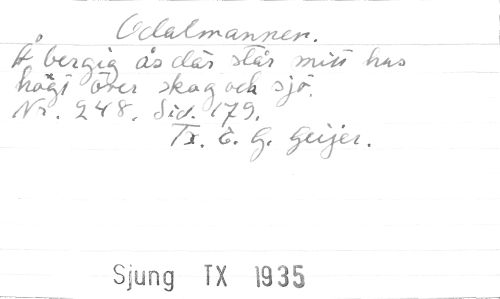 Odalmannen.
Å bergig ås där står mitt hus
högt över skog och sjö.
Nr. 248. Sid. 179.
Tx. E. G. Geijer.
Sjung TX 1935